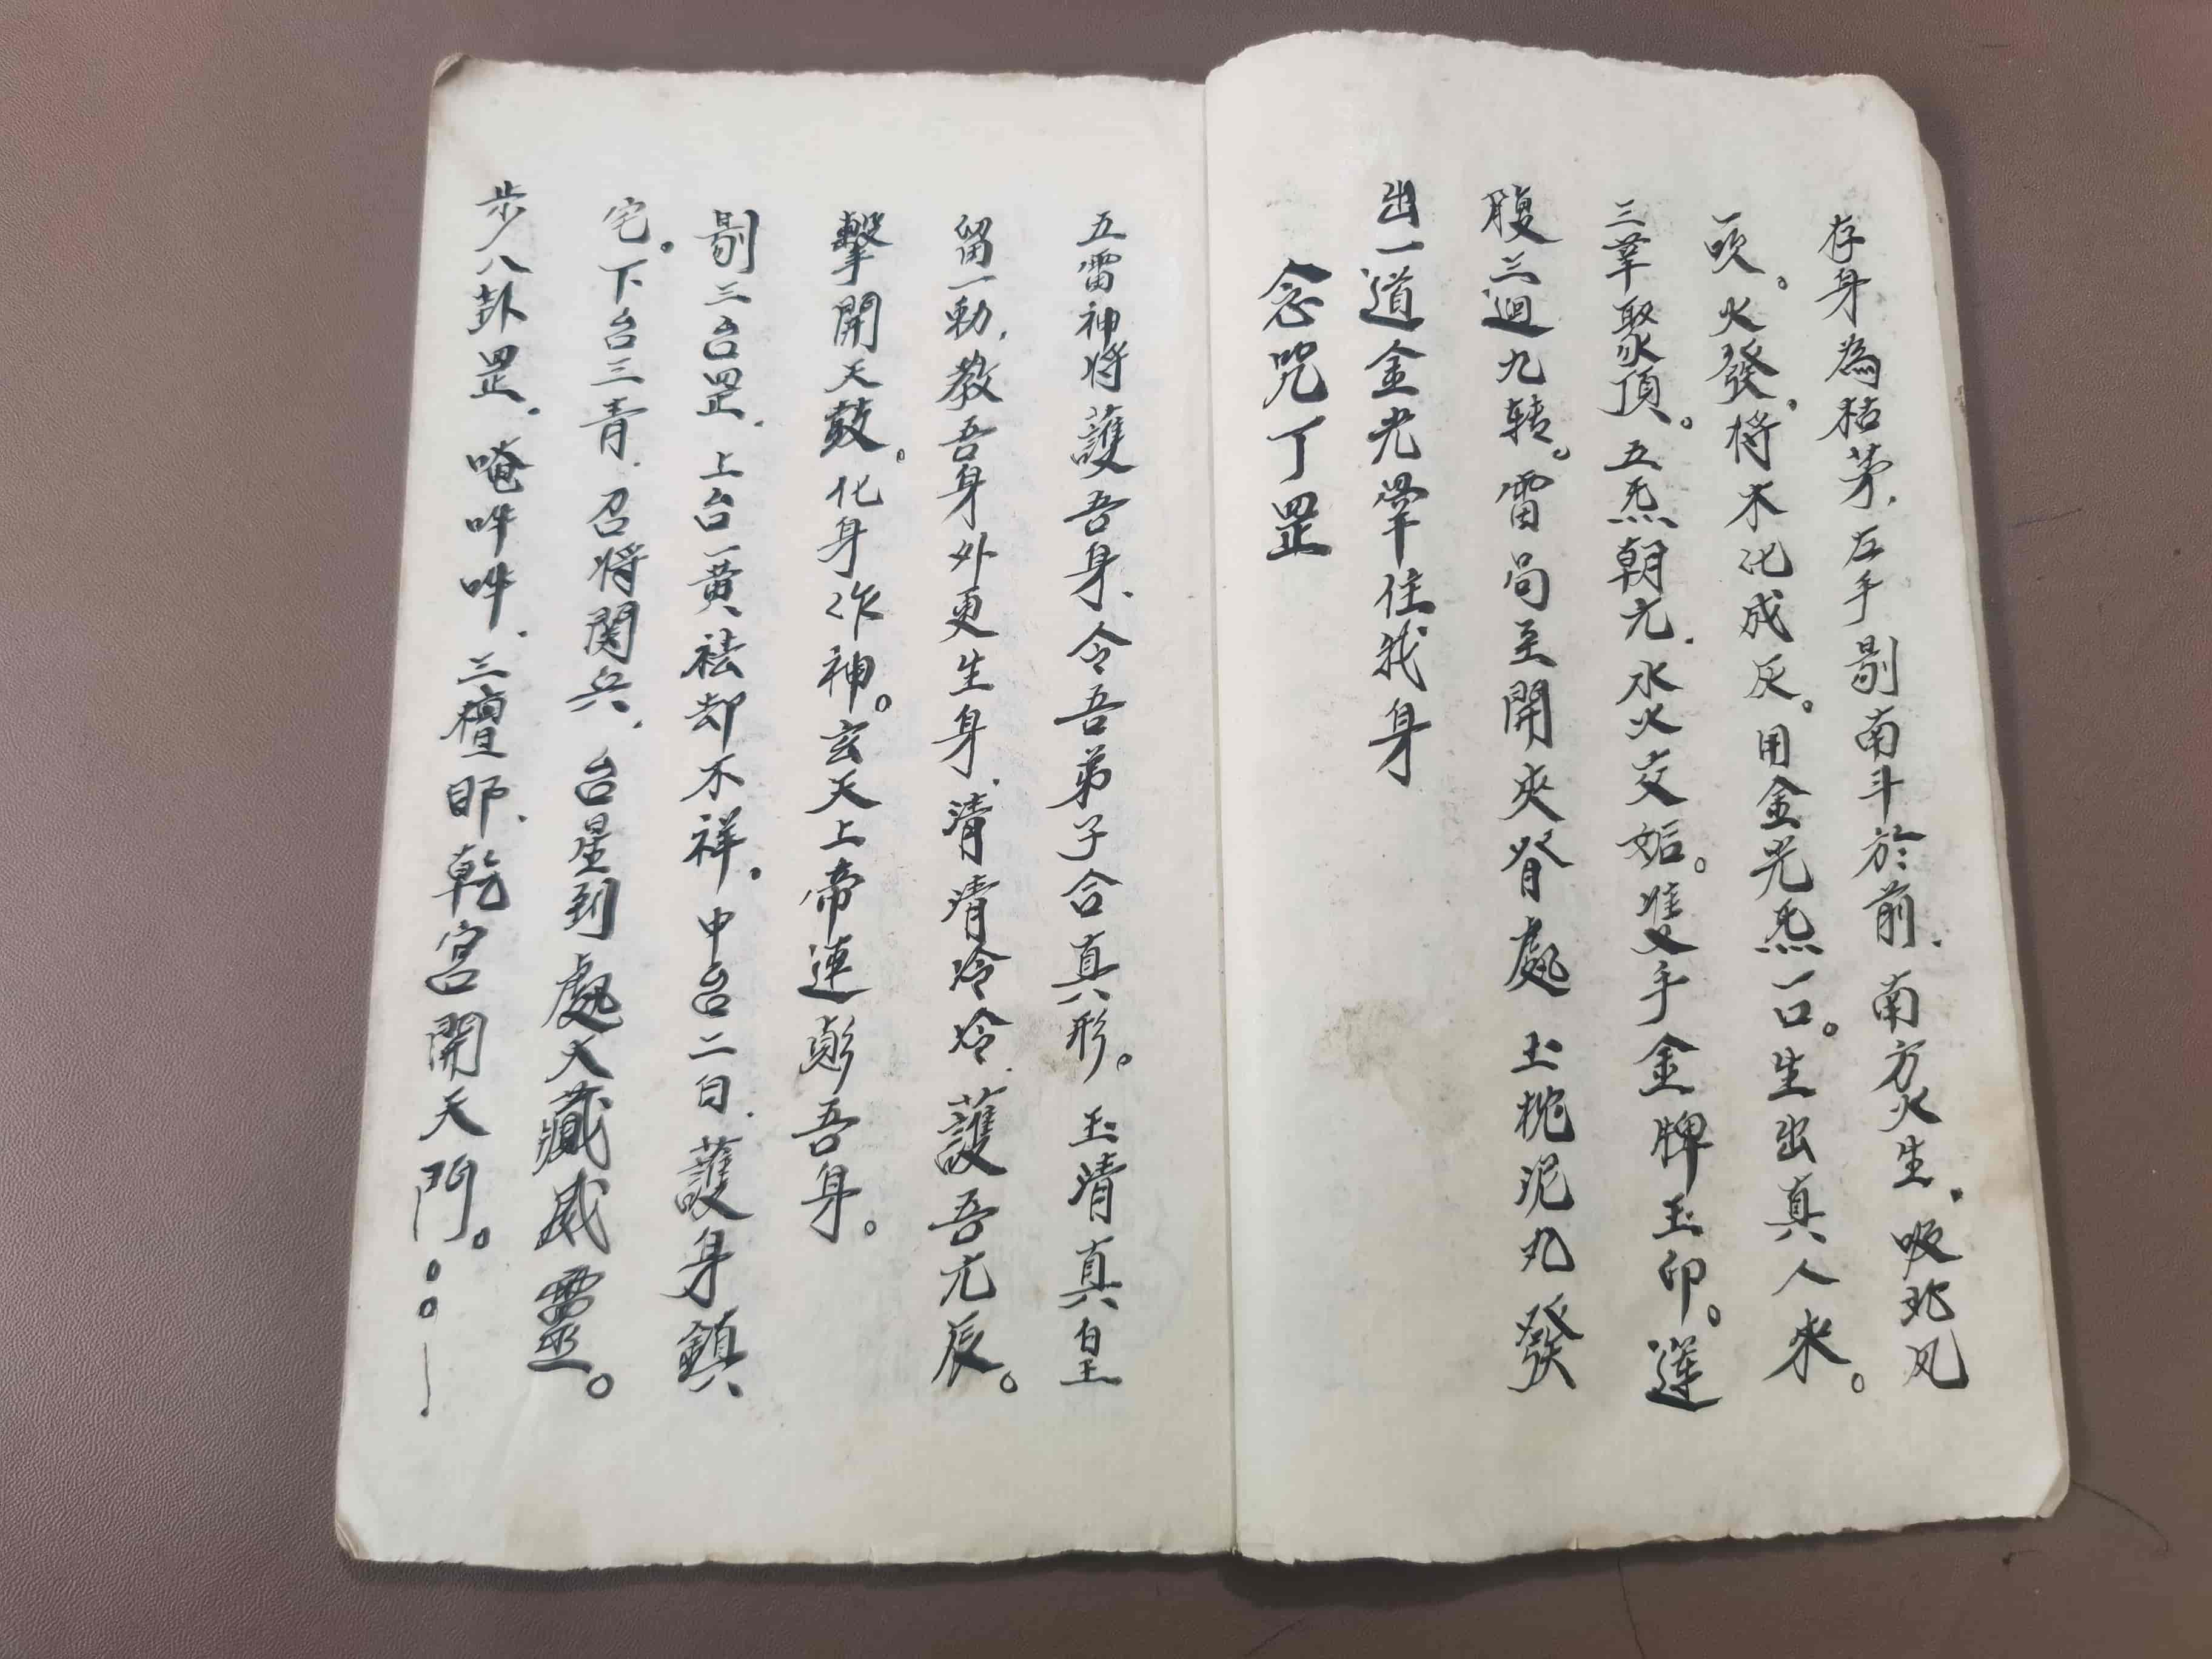 存身為枯茅．左手剔南斗於前．南方火生．吸北风
一吹。火發．将木化成灰。用金光炁一口。生出真人来。
三華聚頂。五炁朝元．水火交姤。雙手金牌玉印。運
腹三迴九转。雷局至開夾脊處 玉枕泥丸發
出一道金光罩住我身
念咒丁罡
五雷神将護吾身．令吾弟子合真形。玉清真皇
留一勅．教吾身外更生身．清清冷冷．護吾元辰。
擊開天鼓。化身作神。玄天上帝連彭吾身。
剔三台罡．上台一黄祛却不祥。中台二白．護身鎮
宅。下台三青．召将関兵．台星到處大藏威靈。
步八卦罡．唵吽吽．三檀耶．乾宮開天門。